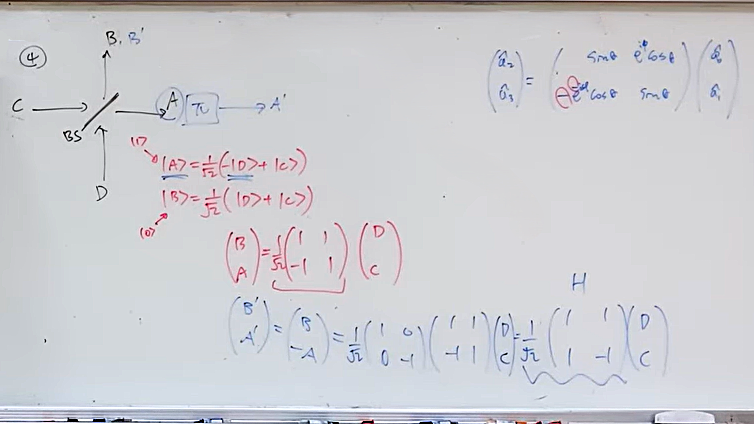 ④
B, B'
C
BS
A
π
A'
D
|1>
|A> = 1/√2 (-|D> + |C>)
|B> = 1/√2 (|D> + |C>)
|0>
(B A) = 1/√2 (1 1 -1 1) (D C)
(B' A') = (B -A) = 1/√2 (1 0 0 -1) (1 1 -1 1) (D C) = 1/√2 (1 1 1 -1) (D C)
H
(â2 â3) = ( sinθ cosθ cosθ sinθ ) (â0 â1)